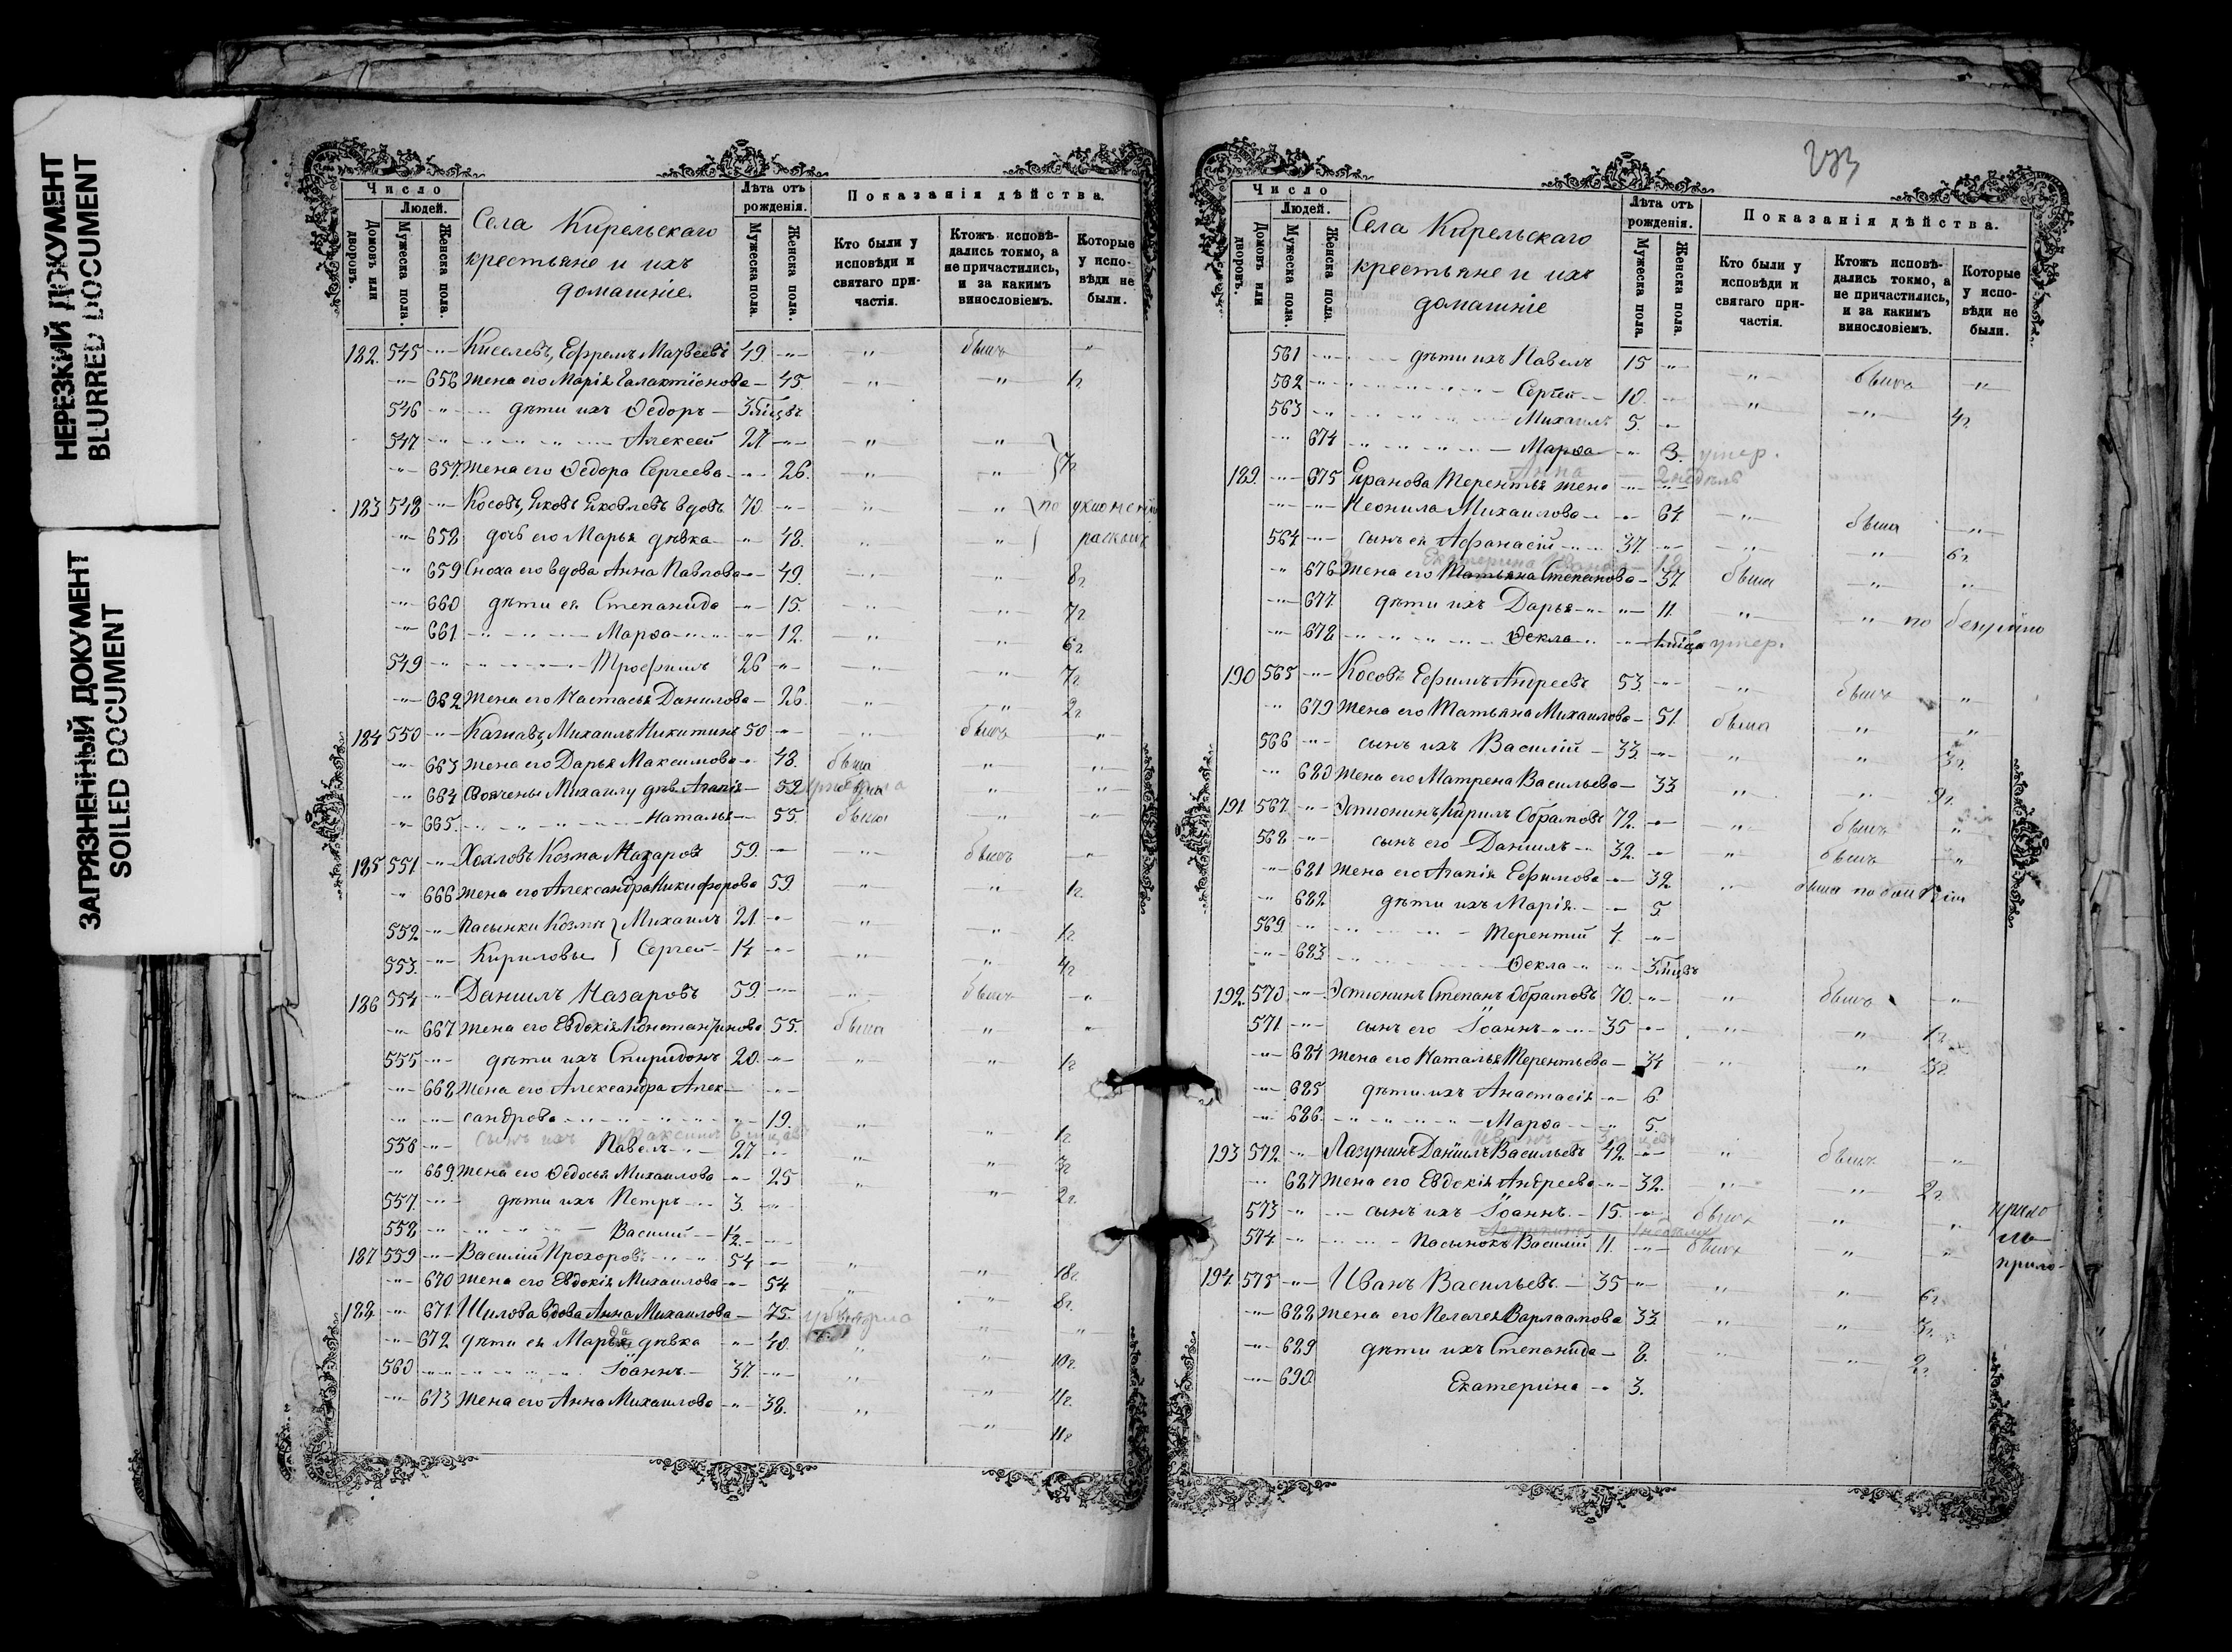 НЕРЕЗКИЙ ДОКУМЕНТ
BLURRED DOCUMENT
ЗАГРЯЗНЕННЫЙ ДОКУМЕНТ
SOILED DOCUMENT
Число
Людей.
Домовъ или дворовъ.
Мужеска пола.
Женска пола.
Села Кирельскаго
крестьяне и ихъ
домашніе.
Лѣта отъ рожденія.
Мужеска пола.
Женска пола.
Показанія дѣйства.
Кто были у исповѣди и святаго причастія.
Ктожъ исповѣдались токмо, а не причастились, и за какимъ винословіемъ.
Которые у исповѣди не были.
182. 545 Киселевъ, Ефремъ Матвеевъ 49 бышъ
656 жена его Марія Галактіонова 45 1г
546 дѣти ихъ Ѳедоръ
547 Алексей 27
657 жена его Ѳедора Сергеева 26. 7г
183 548 Косовъ, Яковъ Яковлевъ вдовъ 70. по
658 дочь его Марья дѣвка 48.
659 Сноха его вдова Анна Павлова 49. 8г
660 дѣти ея Степанида 15. 7г
661 Марѳа 12. 6г
549 Трофимъ 26 7г
662 жена его Настасья Данилова 26. 2г
184 550 Михаилъ Никитинъ 50
663 жена его Дарья Максимова 48.
664 Своячены Михаилу дѣв. Агапія 52
665. Наталья 55.
185 551 Хохловъ Козма Назаровъ 59.
666 жена его Александра Никифорова 59. 1г
552 Пасынки Козмы Михаилъ 21 1г
553. Кириловы Сергей 14 4г
186 554 Даниилъ Назаровъ 59.
667 жена его Евдокія Константинова 55.
555 дѣти ихъ Спиридонъ 20. 1г
668 жена его Александра Алек-
сандрова 19. 1г
сынъ ихъ Максимъ
556 Павелъ 27 3г
669. жена его Ѳедосья Михаилова 25 2г
557. дѣти ихъ Петръ 3.
558 Василий 1/2
187 559 Василій Прохоровъ 54 18г
670 жена его Евдокія Михаилова 54 8г
188 671 Шилова вдова Анна Михаилова 75.
672 дѣти ея Марья дѣвка 40. 10г
560 Іоаннъ 37. 4г
673 жена его Анна Михаилова 38. 11г
Число
Людей.
Домовъ или дворовъ.
Мужеска пола.
Женска пола.
Села Кирельскаго
крестьяне и ихъ
домашніе
Лѣта отъ рожденія.
Мужеска пола.
Женска пола.
Показанія дѣйства.
Кто были у исповѣди и святаго причастія.
Ктожъ исповѣдались токмо, а не причастились, и за какимъ винословіемъ.
Которые у исповѣди не были.
561 дѣти ихъ Павелъ 15
562 Сергей 10. 4г
563 Михаилъ 5.
674 Марѳа 3. умер.
Анна 2 недѣль
189. 675 Терентья жена
Неонила Михаилова 64.
564 сынъ ея Афанасій 37. 6г
676 жена его Татьяна Степанова 37
677 дѣти ихъ Дарья 11.
678 Ѳекла умер.
190 565 Косовъ Ефимъ Андреевъ 53.
679 жена его Татьяна Михаилова 51.
566 сынъ ихъ Василій 33. 3г
680 жена его Матрена Васильева 33 9г
191 567 Эстюнинъ, Кирилъ Обрамовъ 72.
568 сынъ его Даниилъ 32.
681 жена его Агапія Ефимова 32.
682 дѣти ихъ Марія 5
569. Терентий 4.
683 Ѳекла
192. 570 Эстюнинъ Степанъ Обрамовъ 70.
571 сынъ его Іоаннъ 35 1г
684 жена его Наталья Терентьева 34
685 дѣти ихъ Анастасія 6
686. Марѳа 5.
193 572. Лазунинъ Даниилъ Васильевъ 42.
687 жена его Евдокія Андреева 32. 2г
573 сынъ ихъ Іоаннъ 15.
574 Пасынокъ Василій 11.
194 575 Иванъ Васильевъ 35 6г
688 жена его Пелагея Варлаамова 33 3г
689 дѣти ихъ Степанида 8. 2г
690. Екатерина 3.